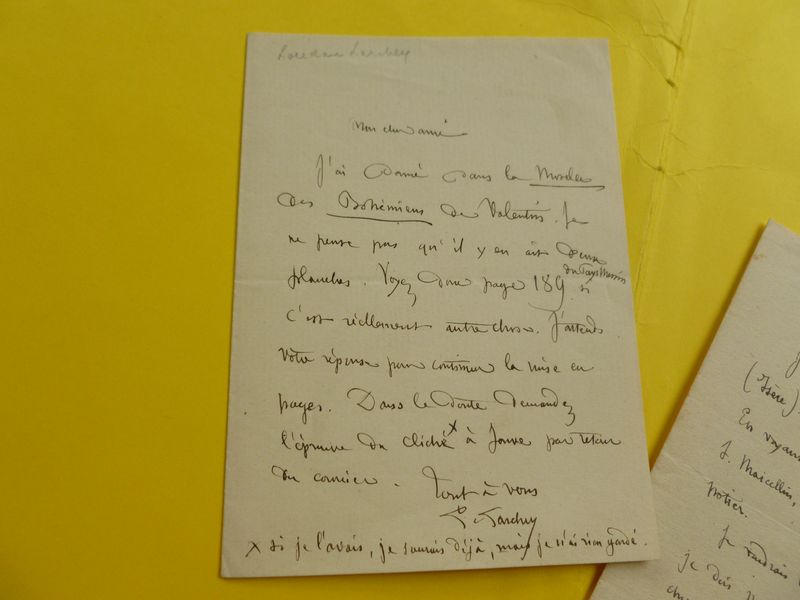 Lorédan Larchey
Mon cher ami
J'ai donné dans la Moselle
des Bohémiens de Valentin. Je
ne pense pas qu'il y en ait deux
planches. Voyez donc page 189 du Pays Messin si
c'est réellement autre chose. J'attends
votre réponse pour continuer la mise en
pages. Dans le doute demandez
l'épreuve du cliché x à Jouve par retour
du courrier. Tout à vous
L. Larchey
x si je l'avais, je saurais déjà, mais je n'ai rien gardé.
(Isère).
En voyant
J. Marcellin,
potier.
Je voudrais
je dois